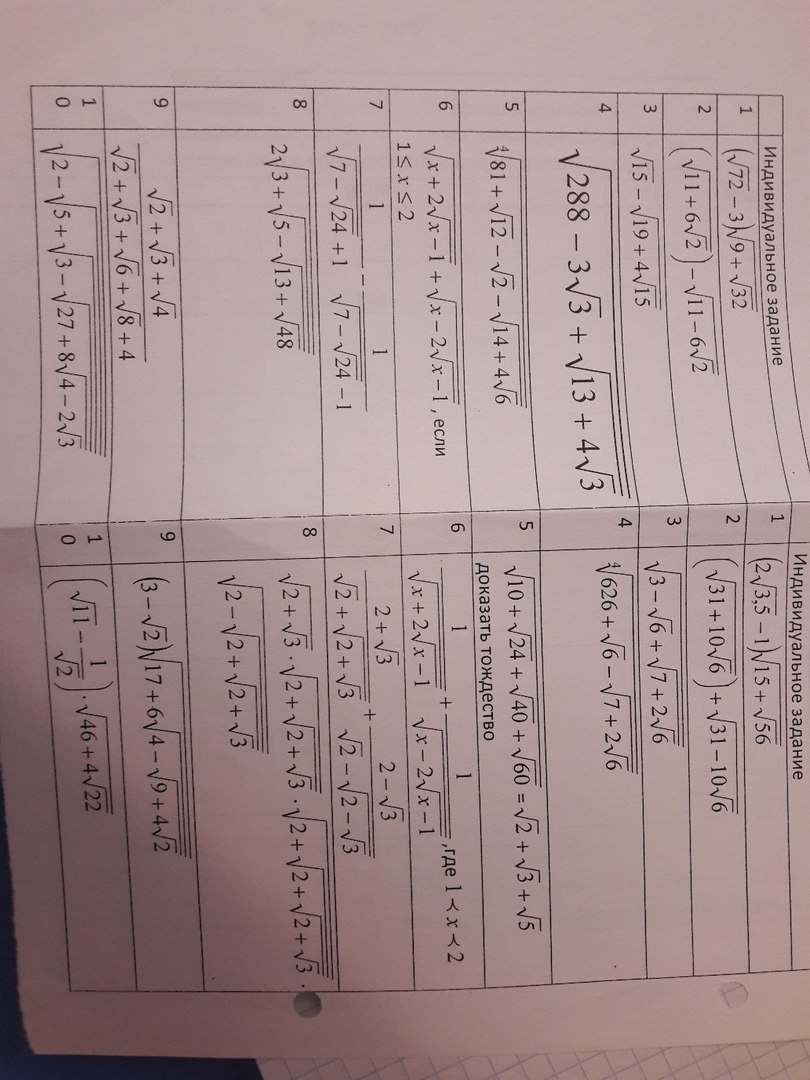 Индивидуальное задание
1 (√72 − 3)√(9 + √32)
2 (√(11 + 6√2)) − √(11 − 6√2)
3 √15 − √(19 + 4√15)
4 √(288 − 3√3 + √(13 + 4√3))
5 ∜(81 + √12 − √2 − √(14 + 4√6))
6 √(x + 2√(x − 1)) + √(x − 2√(x − 1)), если
1 ≤ x ≤ 2
7 1/(√(7 − √24) + 1) − 1/(√(7 − √24) − 1)
8 2√(3 + √(5 − √(13 + √48)))
9 (√2 + √3 + √4)/(√2 + √3 + √6 + √8 + 4)
10 √(2 − √(5 + √(3 − √(27 + 8√(4 − 2√3)))))
Индивидуальное задание
1 (2√3,5 − 1)√(15 + √56)
2 (√(31 + 10√6)) + √(31 − 10√6)
3 √(3 − √6 + √(7 + 2√6))
4 ∜(626 + √6 − √(7 + 2√6))
5 √(10 + √24 + √40 + √60) = √2 + √3 + √5
доказать тождество
6 1/√(x + 2√(x − 1)) + 1/√(x − 2√(x − 1)), где 1 ≺ x ≺ 2
7 (2 + √3)/(√2 + √(2 + √3)) + (2 − √3)/(√2 − √(2 − √3))
8 √(2 + √3) · √(2 + √(2 + √3)) · √(2 + √(2 + √(2 + √3))) ·
√(2 − √(2 + √(2 + √3)))
9 (3 − √2)√(17 + 6√(4 − √(9 + 4√2)))
10 (√11 − 1/√2) · √(46 + 4√22)